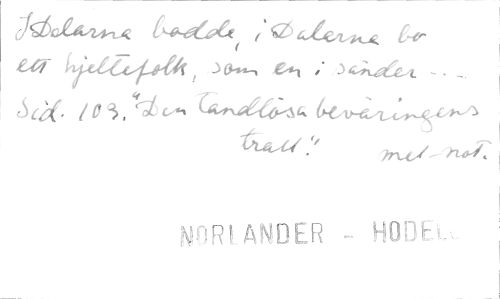 I Dalarna bodde, i Dalarna bo
ett hjeltefolk, som en i sänder ---
Sid. 103. "Den tandlösa beväringens
trall".
mel-not.
NORLANDER - HODELL